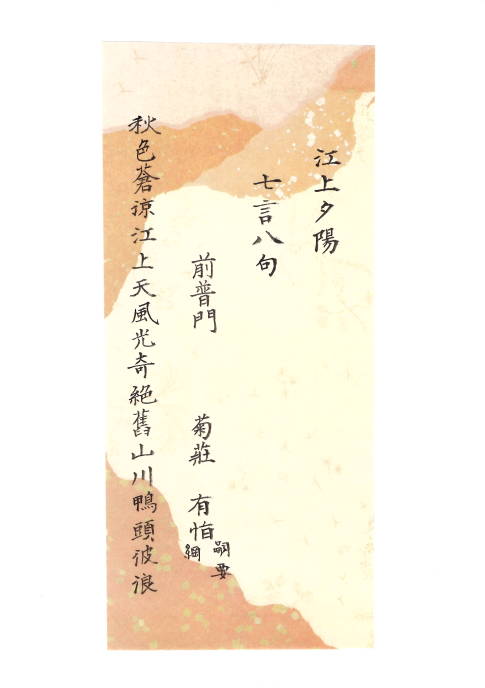 江上夕陽
七言八句
前普門 菊莊 有怕 嗣要
綱
秋色蒼涼江上天風光奇絶舊山川鴨頭波浪